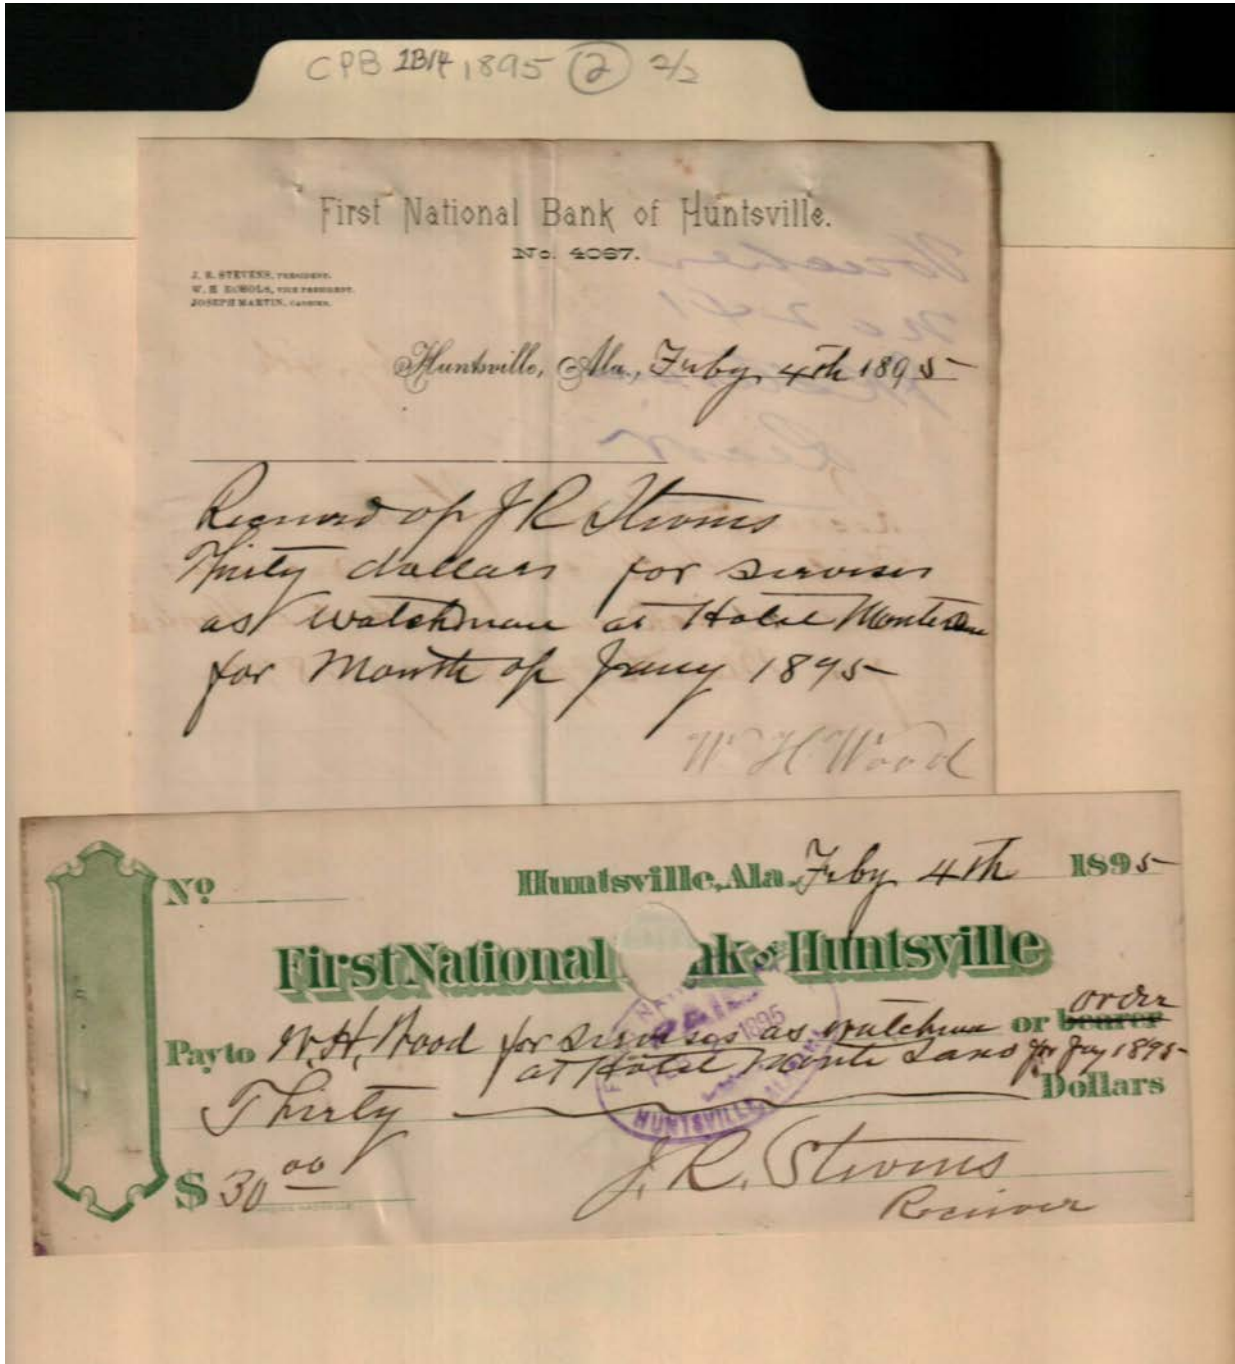 CPB 2B14 1895 (2) 2/2
First National Bank of Huntsville.
No. 4067.
J. R. STEVENS, PRESIDENT.
W. H. ECHOLS, VICE PRESIDENT.
JOSEPH MARTIN, CASHIER.
Huntsville, Ala., Feby 4th 1895
Received of J R Stevens
Thirty dollars for services
as watchman at Hotel Montesano
for Month of Jany 1895
W H Wood
No Huntsville, Ala. Feby 4th 1895
First National Bank of Huntsville
order
Pay to W. H. Wood for services as watchman or bearer
at Hotel Monte Sano for Jay 1895
Thirty Dollars
$ 30 00
J. R. Stevens
Receiver
PAID
1895
HUNTSVILLE, ALA